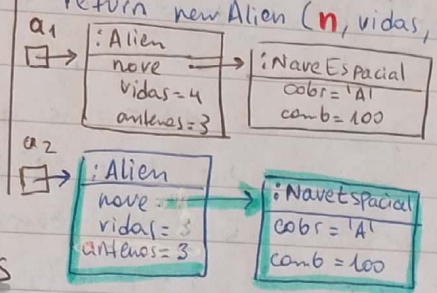 return new Alien (n, vidas,
a1
: Alien
nave
vidas=4
antenas=3
: NaveEspacial
cobr= 'A'
comb = 100
a2
: Alien
nave
vidas= 3
antenas= 3
: NaveEspacial
cobr = 'A'
comb = 100